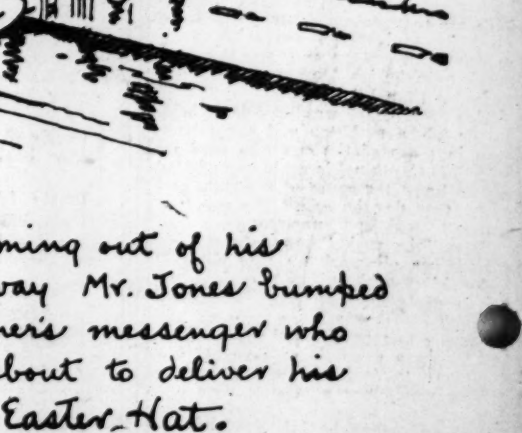 ming out of his
way Mr. Jones bumped
ner's messenger who
bout to deliver his
Easter Hat.